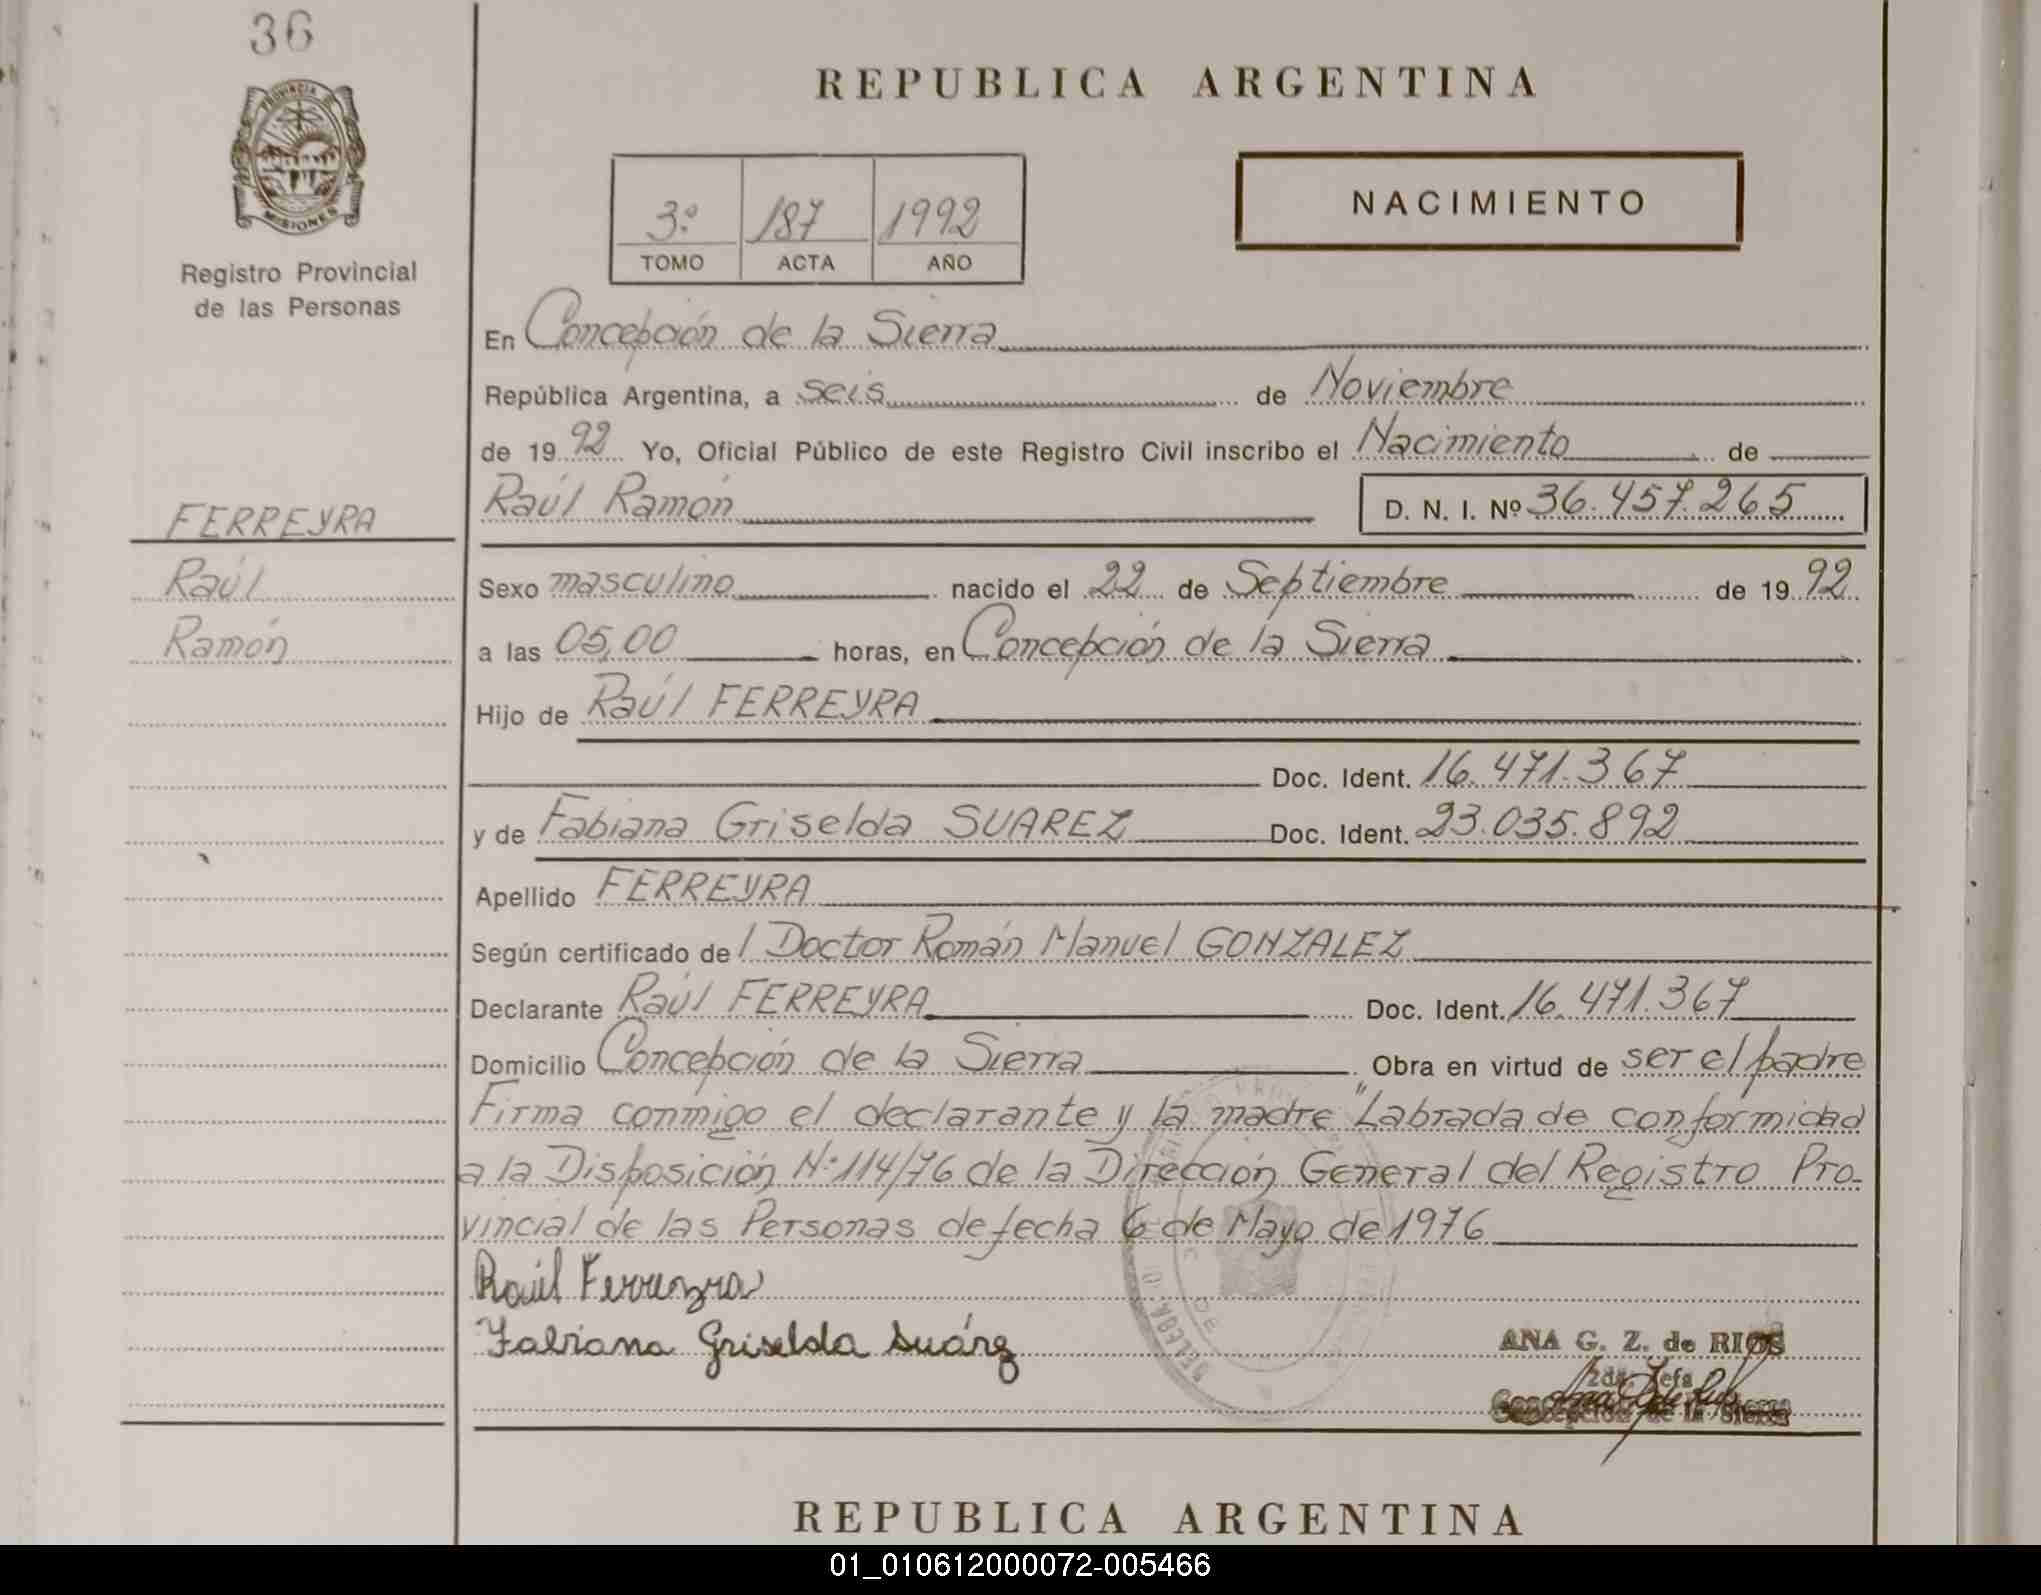 36
PROVINCIA DE
MISIONES
Registro Provincial
de las Personas
FERREYRA
Raúl
Ramón
REPUBLICA ARGENTINA
3º 187 1992
TOMO ACTA AÑO
NACIMIENTO
En Concepción de la Sierra
República Argentina, a seis de Noviembre
de 1992 Yo, Oficial Público de este Registro Civil inscribo el Nacimiento de
Raúl Ramón D. N. I. Nº 36.457.265
Sexo masculino nacido el 22 de Septiembre de 1992
a las 05,00 horas, en Concepción de la Sierra
Hijo de Raúl FERREYRA
Doc. Ident. 16.471.367
y de Fabiana Griselda SUAREZ Doc. Ident. 23.035.892
Apellido FERREYRA
Según certificado del Doctor Román Manuel GONZALEZ
Declarante Raúl FERREYRA Doc. Ident. 16.471.367
Domicilio Concepción de la Sierra Obra en virtud de ser el padre
Firma conmigo el declarante y la madre "Labrada de conformidad
a la Disposición Nº 114/76 de la Dirección General del Registro Pro-
vincial de las Personas de fecha 6 de Mayo de 1976
Raúl Ferreyra
Fabiana Griselda Suárez
ANA G. Z. de RIOS
2da. Jefa
Concepción de la Sierra
REPUBLICA ARGENTINA
01_010612000072-005466